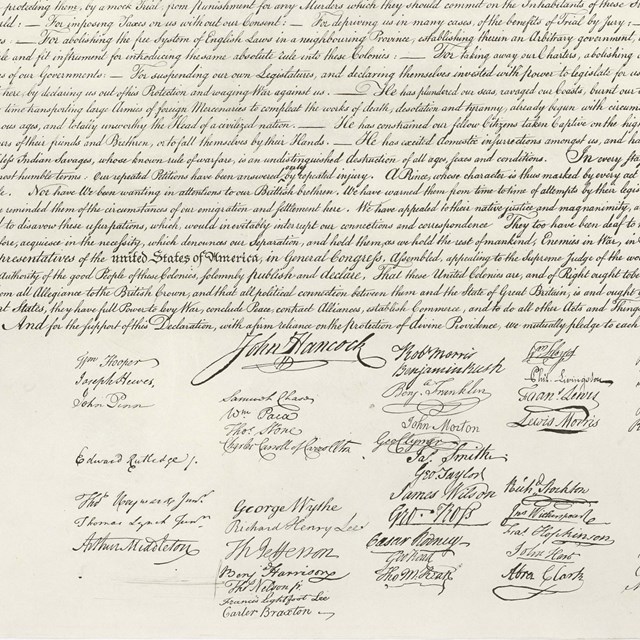 protecting them, by a mock Trial, from punishment for any Murders which they should commit on the Inhabitants of these
: — For imposing Taxes on us without our Consent: — For depriving us in many cases, of the benefits of Trial by Jury: —
: — For abolishing the free System of English Laws in a neighbouring Province, establishing therein an Arbitrary government,
and fit instrument for introducing the same absolute rule into these Colonies: — For taking away our Charters, abolishing
of our Governments: — For suspending our own Legislatures, and declaring themselves invested with power to legislate for
here, by declaring us out of his Protection and waging War against us. — He has plundered our seas, ravaged our Coasts, burnt our
time transporting large Armies of foreign Mercenaries to compleat the works of death, desolation and tyranny, already begun with
ages, and totally unworthy the Head of a civilized nation. — He has constrained our fellow Citizens taken Captive on the high
of their friends and Brethren, or to fall themselves by their Hands. — He has excited domestic insurrections amongst us, and
Indian Savages, whose known rule of warfare, is an undistinguished destruction of all ages, sexes and conditions. In every
humble terms: Our repeated Petitions have been answered by repeated injury. A Prince, whose character is thus marked by every act
Nor have We been wanting in attentions to our Brittish brethren. We have warned them from time to time of attempts by their
reminded them of the circumstances of our emigration and settlement here. We have appealed to their native justice and magnanimity,
to disavow these usurpations, which, would inevitably interrupt our connections and correspondence They too have been deaf to
acquiesce in the necessity, which denounces our Separation, and hold them, as we hold the rest of mankind, Enemies in War, in
presentatives of the united States of America, in General Congress, Assembled, appealing to the Supreme Judge of the
authority of the good People of these Colonies, solemnly publish and declare, That these United Colonies are, and of Right ought to be
all Allegiance to the British Crown, and that all political connection between them and the State of Great Britain, is and ought
States, they have full Power to levy War, conclude Peace, contract Alliances, establish Commerce, and to do all other Acts and
And for the support of this Declaration, with a firm reliance on the protection of divine Providence, we mutually pledge to each
John Hancock
Wm Hooper
Joseph Hewes,
John Penn
Edward Rutledge /.
Thos Heyward Junr.
Thomas Lynch Junr.
Arthur Middleton
Samuel Chase
Wm Paca
Thos Stone
Charles Carroll of Carrollton
George Wythe
Richard Henry Lee
Th Jefferson
Benj Harrison
Thos Nelson jr.
Francis Lightfoot Lee
Carter Braxton
Robt Morris
Benjamin Rush
Benj. Franklin
John Morton
Geo Clymer
Jas. Smith
Geo. Taylor
James Wilson
Geo. Ross
Caesar Rodney
Geo Read
Tho M:Kean
Wm Floyd
Phil. Livingston
Frans. Lewis
Lewis Morris
Richd. Stockton
Jno Witherspoon
Fras. Hopkinson
John Hart
Abra Clark